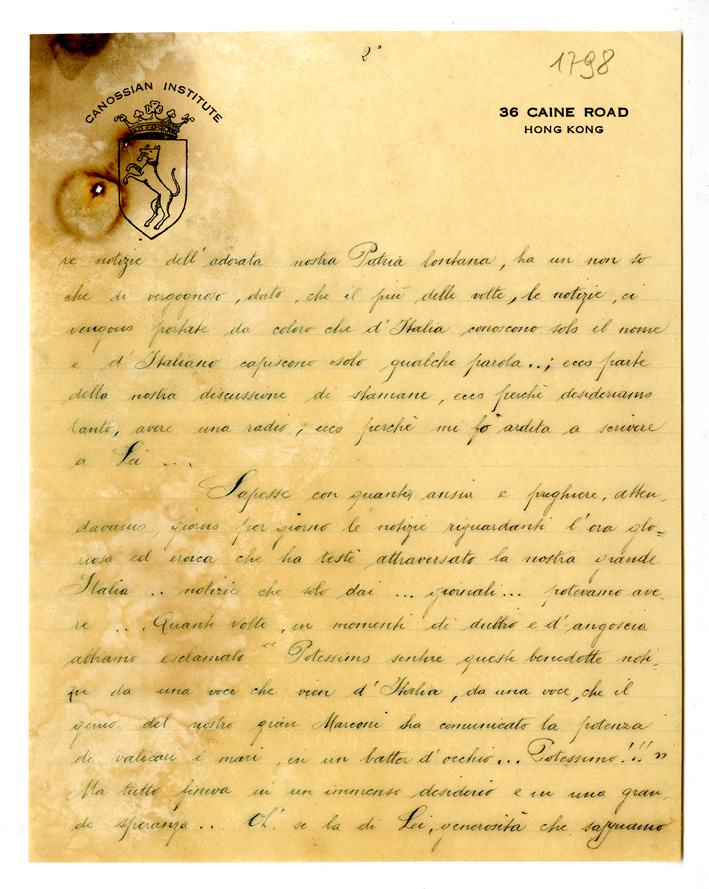 2°
1798
CANOSSIAN INSTITUTE
36 CAINE ROAD
HONG KONG
re notizie dell'adorata nostra Patria lontana, ha un non so
che di vergognoso, dato, che il più delle volte, le notizie, ci
vengono portate da coloro che d'Italia conoscono solo il nome
e d'Italiano capiscono solo qualche parola..; ecco parte
della nostra discussione di stamane, ecco perchè desideriamo
tanto, avere una radio, ecco perchè mi fò ardita a scrivere
a Lei ...
Sapesse con quanta ansia e preghiere, atten-
davamo, giorno per giorno le notizie riguardanti l'ora glo=
riosa ed eroica che ha testè attraversato la nostra grande
Italia .. notizie che solo dai ... giornali... potevamo ave-
re ... Quante volte, in momenti di dubbio e d'angoscia
abbiamo esclamato " Potessimo sentire queste benedette noti-
zie da una voce che vien d'Italia, da una voce, che il
genio del nostro gran Marconi ha comunicato la potenza
di valicari i mari, in un batter d'occhio... Potessimo!!! "
Ma tutto finiva in un immenso desiderio e in una gran-
de speranza .. Oh! se la di Lei, generosità che sappiamo